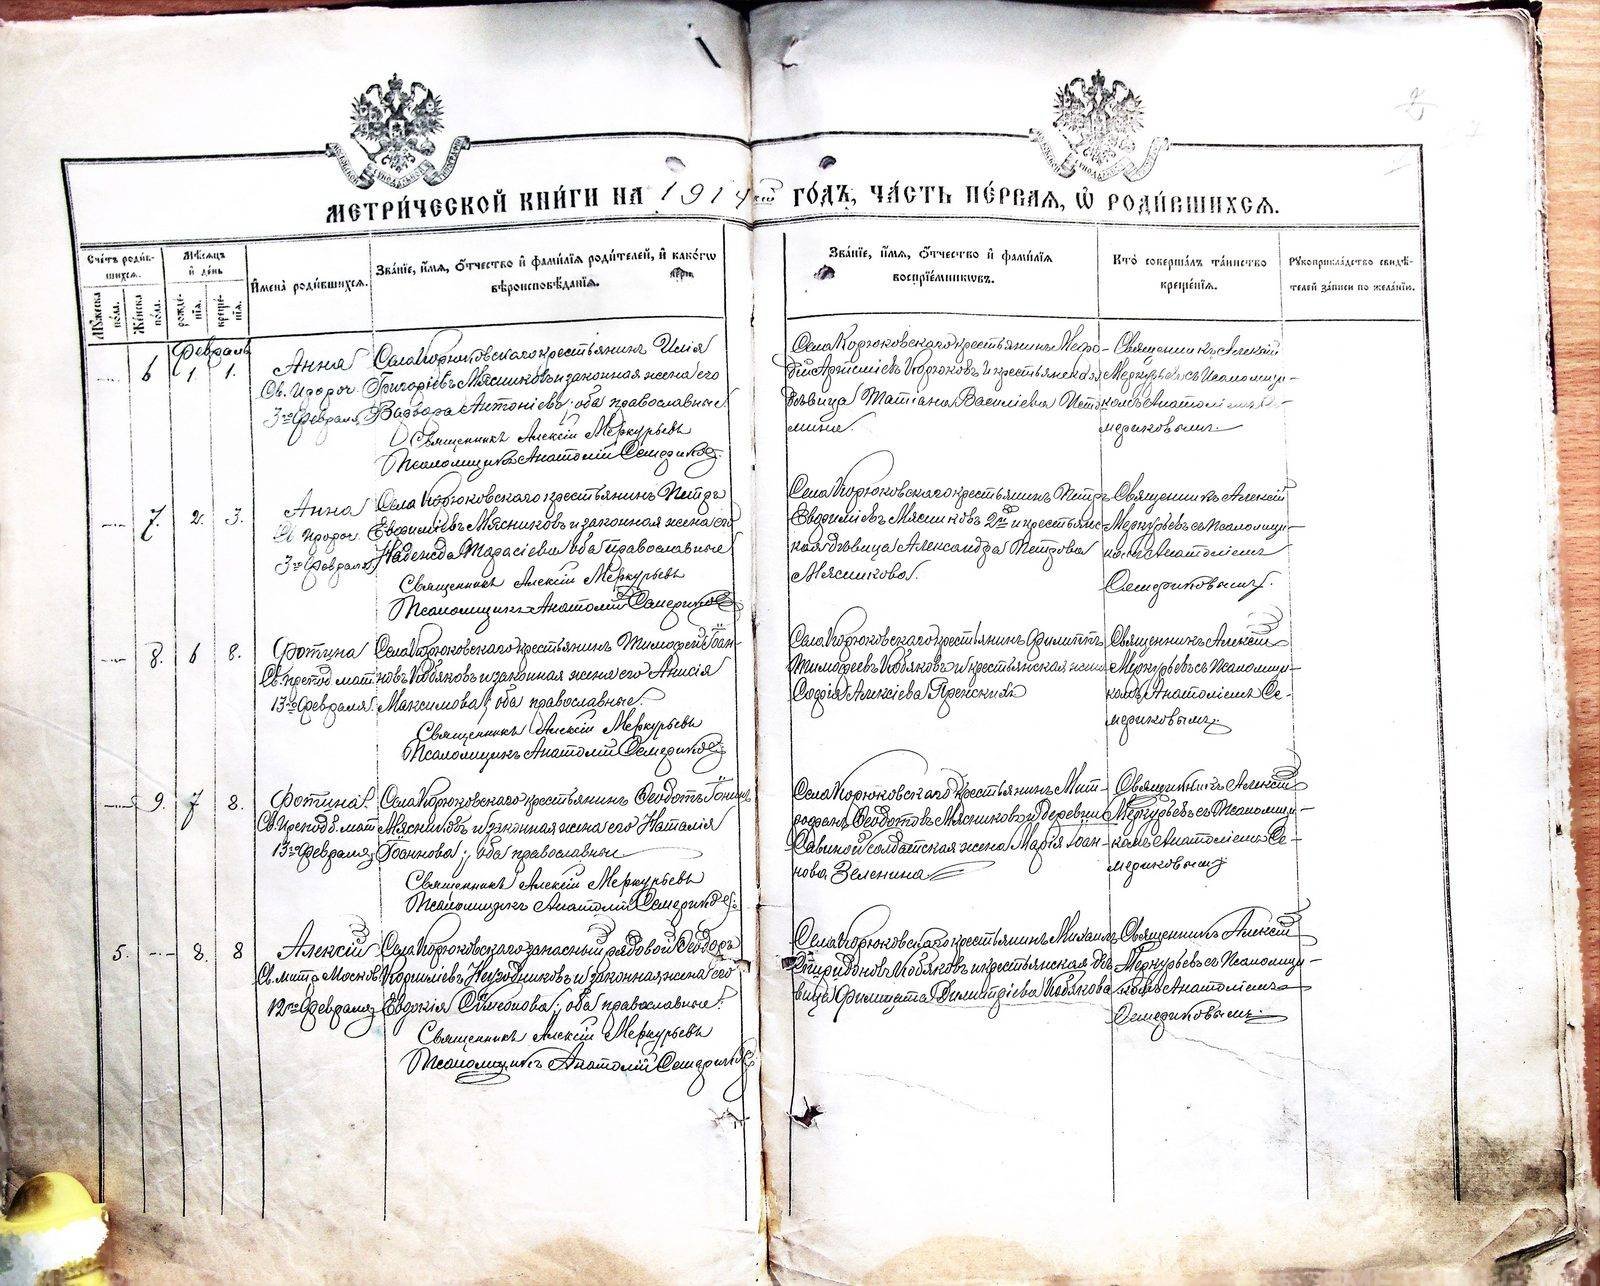 МЕТРИ́ЧЕСКОЙ КНИ́ГИ НА 1914 ГО́ДЪ, ЧА́СТЬ ПЕ́РВАЯ, Ѡ҆ РОДИ́ВШИХСЯ.
Сче́тъ роди́в-
шихся.
Мꙋжеска по́ла.
Же́нска по́ла.
Мѣ́сяцъ
и҆ де́нь
рожде-
нїя.
креще́-
нїя.
И҆мена̀ роди́вшихся.
Зва́нїе, и҆́мя, ѻ҆́тчество и҆ фами́лїя роди́телей, и҆ како́гѡ
вѣроисповѣ́данїя.
Зва́нїе, и҆́мя, ѻ҆́тчество и҆ фами́лїя
воспрїе́мникѡвъ.
Кто̀ соверша́лъ та́инство
креще́нїя.
Рꙋкоприкла́дство свидѣ́-
телей за́писи по жела́нїю.
Февраль
6 1 1.
Анна
Св. Пророч.
3го Февраля
Села Корюковскаго крестьянинъ Илія
Григоріевъ Мясниковъ и законная жена его
Варвара Антоніева; оба православные.
Священникъ Алексій Меркурьевъ
Псаломщикъ Анатолій Семериков
Села Корюковскаго крестьянинъ
Артеміевъ Корюковъ и крестьянская
дѣвица Татіана Василіева
Священникъ Алексій
Меркурьевъ съ Псаломщи-
комъ Анатоліемъ Се-
мериковымъ.
7. 2. 3.
Анна
Св. Пророч.
3го Февраля
Села Корюковскаго крестьянинъ Петръ
Евфиміевъ Мясниковъ и законная жена его
Надежда Тарасіева оба православные
Священникъ Алексій Меркурьевъ
Псаломщикъ Анатолій Семериков
Села Корюковскаго крестьянинъ Петръ
Евфиміевъ Мясниковъ 2й и крестьянс-
кая дѣвица Александра Петрова
Мясникова.
Священникъ Алексій
Меркурьевъ съ Псаломщи-
комъ Анатоліемъ
Семериковымъ.
8. 6 8.
Фотина
Св. препод. мат
13го Февраля
Села Корюковскаго крестьянинъ Тимофей Іоан-
новъ Кобяковъ и законная жена его Анисія
Максимова; оба православные.
Священникъ Алексій Меркурьевъ
Псаломщикъ Анатолій Семериков
Села Корюковскаго крестьянинъ Филиппъ
Тимофеевъ Кобяковъ и крестьянская жена
Софія Алексіева
Священникъ Алексій
Меркурьевъ съ Псаломщи-
комъ Анатоліемъ Се-
мериковымъ.
9. 7 8.
Фотина.
Св. Преподб. мат
13го Февраля
Села Корюковскаго крестьянинъ Ѳеодотъ
Мясниковъ и законная жена его Наталія
Іоаннова; оба православные
Священникъ Алексій Меркурьевъ
Псаломщикъ Анатолій Семериков
Села Корюковскаго крестьянинъ Мит-
рофанъ Ѳеодотовъ Мясниковъ и деревни
Савиной солдатская жена Марія Іоан-
нова Зеленина
Священникъ Алексій
Меркурьевъ съ Псаломщи-
комъ Анатоліемъ Се-
мериковымъ
5. 8. 8
Алексій
Св. митр. Москов.
12го Февраля
Села Корюковскаго запасный рядовой Ѳеодоръ
Корниліевъ и законная жена его
Евдокія Симеонова; оба православные.
Священникъ Алексій Меркурьевъ
Псаломщикъ Анатолій Семериков
Села Корюковскаго крестьянинъ Михаилъ
Спиридоновъ Кобяковъ и крестьянская дѣ-
вица Филицата Димитріева Кобякова
Священникъ Алексій
Меркурьевъ съ Псаломщи-
комъ Анатоліемъ
Семериковымъ.